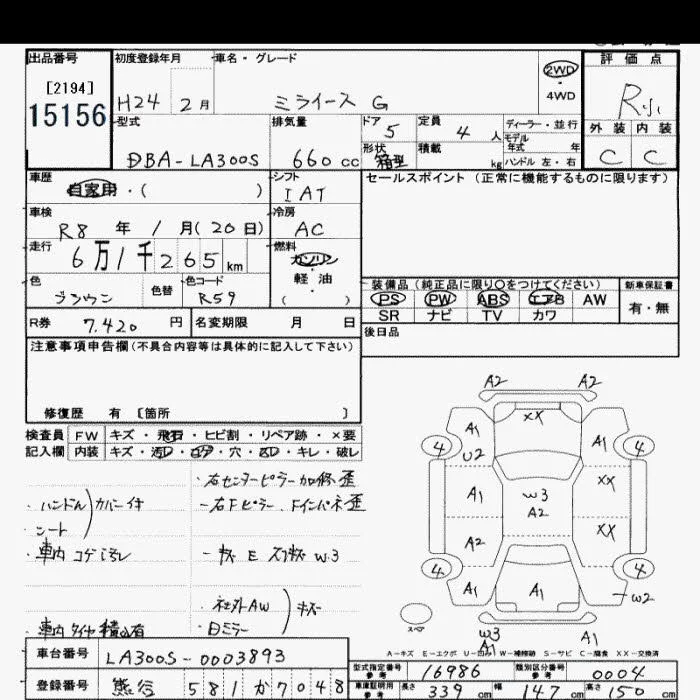 出品番号 初度登録年月 車名・グレード 評価点
[2194] 2WD
15156 H24 2月 ミライース G ・ 4WD R小
型式 排気量 ドア 5 定員 4人 ディーラー・並行 外装 内装
モデル年式 年
DBA-LA300S 660cc 形状 箱型 積載 kg ハンドル 左・右 C C
車歴 自家用・( ) シフト IAT セールスポイント (正常に機能するものに限ります)
車検 R8年 1月(20日) 冷房 AC
走行 6万1千265km 燃料 ガソリン・軽油 ( )
色 ブラウン 色替 色コード R59
装備品 (純正品に限り○をつけてください) 新車保証書
PS PW ABS エアB AW 有・無
SR ナビ TV カワ
R券 7,420円 名変期限 月 日 後日品
注意事項申告欄(不具合内容等は具体的に記入して下さい)
修復歴 有 〔箇所 〕
検査員 FW キズ・飛石・ヒビ割・リペア跡・×要
記入欄 内装 キズ・汚レ・コゲ・穴・スレ・キレ・破レ
・右センターピラー加修、歪
・ハンドル カバー付 ・右Fピラー、Fインパネ歪
・シート
・車内 コゲ汚レ
・社外AW キズ
・車内 タイヤ積込有 ・Dミラー
A2 A2
XX
A1 A1
4 U2 4
A1 W3 XX
A2
A2 XX
4 4
A1 A1 A1 W2
スペア
W3
A1 A1
A-キズ E-エクボ U-凹ム W-補修跡 S-サビ C-腐食 XX-交換済
車台番号 LA300S-0003893 型式指定番号 参考 16986 類別区分番号 参考 0004
登録番号 熊谷 581か7048 車庫証明用 参考 長さ 339cm 幅 147cm 高さ 150cm